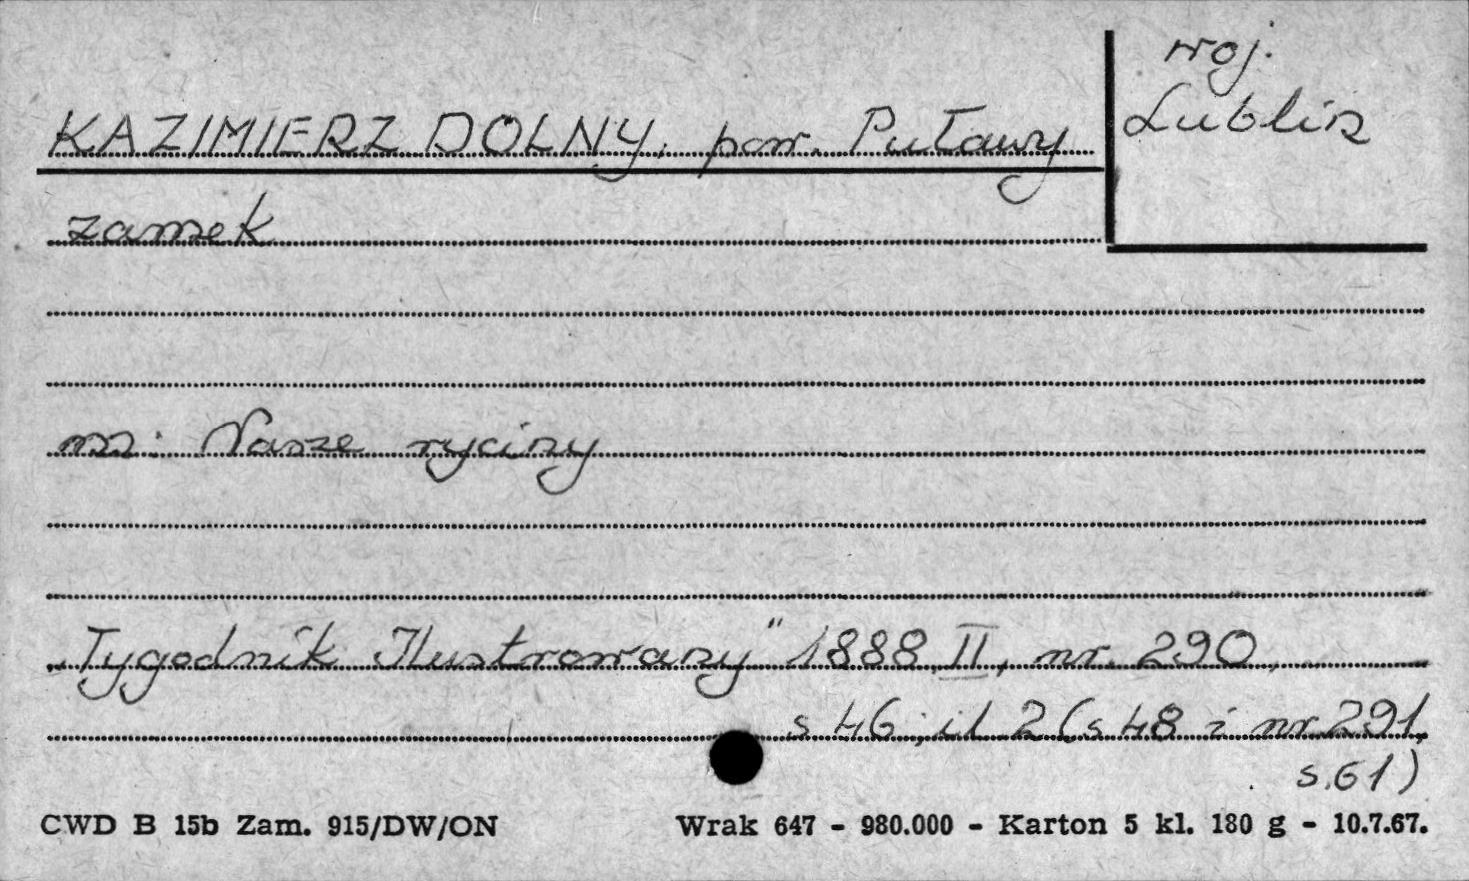 woj.
Lublin
KAZIMIERZ DOLNY, pow. Puławy
zamek
m: Nasze ryciny
„Tygodnik Ilustrowany" 1888, II, nr. 290,
s 46, il 2 (s 48 i nr 291,
s. 61)
CWD B 15b Zam. 915/DW/ON
Wrak 647 - 980.000 - Karton 5 kl. 180 g - 10.7.67.